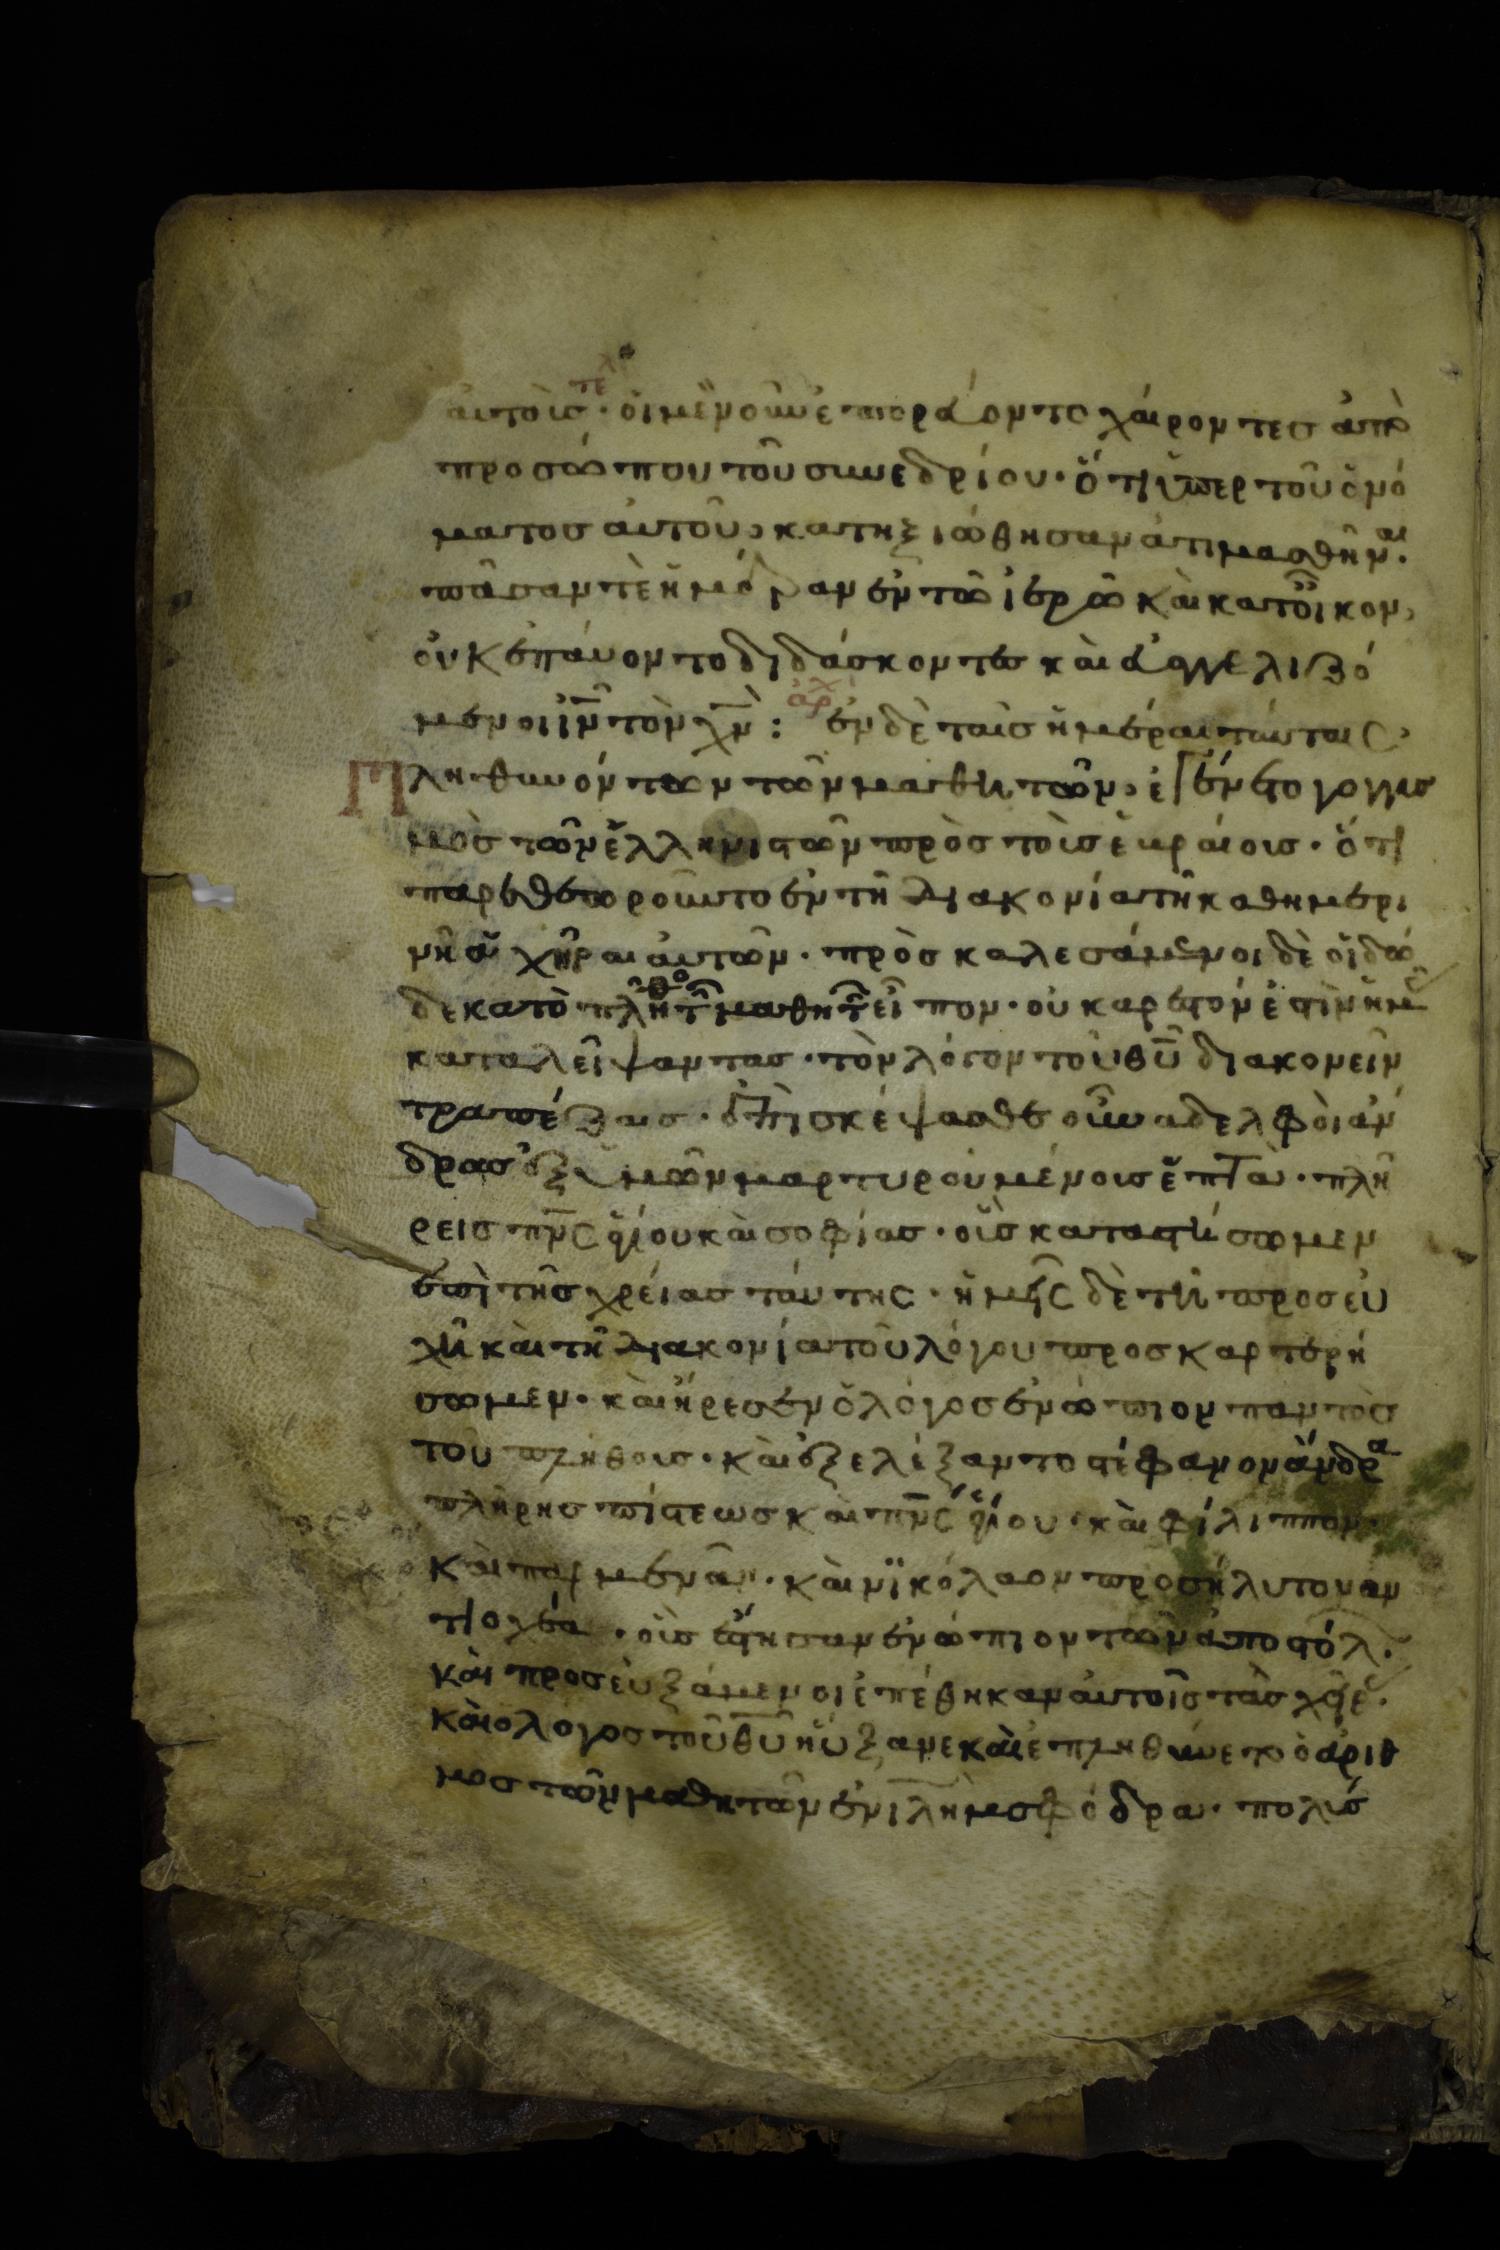 τε λ
αὐτοῖς · οἱ μὲν οὖν ἐπορέυοντο χαίροντες ἀπὸ
προσώπου τοῦ συνεδρίου · ὅτι ὑπερ τοῦ ὀνό
ματος ἀυτοῦ κατηξιώθησαν ἀτιμασθῆναι ·
πᾶσαν τὲ ἡμέραν ἐν τῶ ἱερῶ καὶ κατ οἶκον,
οὐκ ἐπάυοντο διδάσκοντες καὶ ἐυαγγελιζό
μενοι ιν τὸν χν : ἀρχ ἐν δὲ ταῖς ἡμέραις ταύταις
Πληθυνόντων τῶν μαθητῶν, ἐγένετο γογγυσ
μὸς τῶν ἑλληνιστῶν πρὸς τοὺς ἑβραίους · ὅτι
παρεθεωροῦντο ἐν τῆ διακονία τῆ καθημερι
νῆ αἱ χῆραι ἀυτῶν · πρὸς καλεσάμενοι δὲ οἱ δώ
δεκα τὸ πλῆθο τ μαθητ εἶπον · οὐκ αρεστόν ἐστὶν ἡμ
καταλεῖψαντας · τὸν λόγον τοῦ θυ διακονεῖν
τραπέζαις · ἐπισκέψασθε οὖν αδελφοὶ ἄν
δρας ἐξ ὑμῶν μαρτυρουμένους ἑπτὰ · πλή
ρεις πνς ἁγίου καὶ σοφίας · οὓς καταστήσωμεν
ἐπὶ τῆς χρείας ταύτης · ἡμεῖς δὲ τῆ προσευ
χῆ καὶ τῆ διακονία τοῦ λόγου προσκαρτερή
σωμεν · καὶ ἤρεσεν ὁ λόγος ἐνώπιον παντὸς
τοῦ πλήθους · καὶ ἐξελέξαντο στέφανον ἄνδρα
πλήρης πίστεως καὶ πνς ἁγίου · καὶ φίλιππον ·
καὶ παρμενᾶν · καὶ νϊκόλαον προσήλυτον αν
τιοχέα · οὓς ἔστησαν ἐνώπιον τῶν ἀποστόλ ·
καὶ προσευξάμενοι ἐπέθηκαν ἀυτοῖς τὰς χεῖρ ·
καὶ ο λογος τοῦ θυ ηὔξανε καὶ ἐπληθύνετο ὁ ἀριθ
μος τῶν μαθητῶν ἐν ιλημ σφόδρα · πολύς